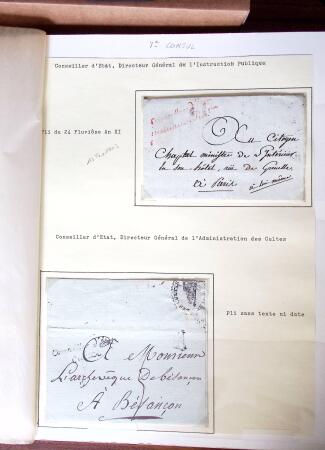 1er CONSUL
Conseiller d'Etat, Directeur Général de l'Instruction Publique
Pli du 24 Pluviôse An XI
Au Citoyen
Chaptal ministre de l'Intérieur
en son hôtel, rue de Grenelle
à Paris
à lui même
Conseiller d'Etat, Directeur Général de l'Administration des Cultes
Pli sans texte ni date
A Monsieur
L'archevêque De besançon
A Besançon